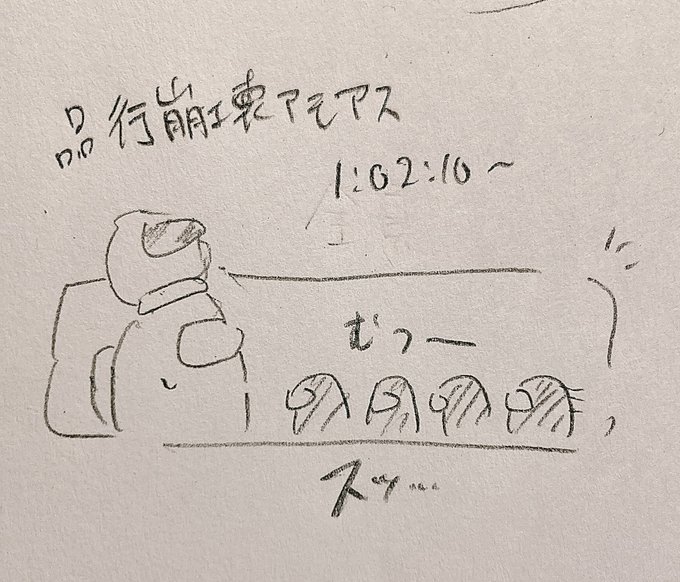 品行崩壊アモアス
1:02:10~
むっー
スッ…